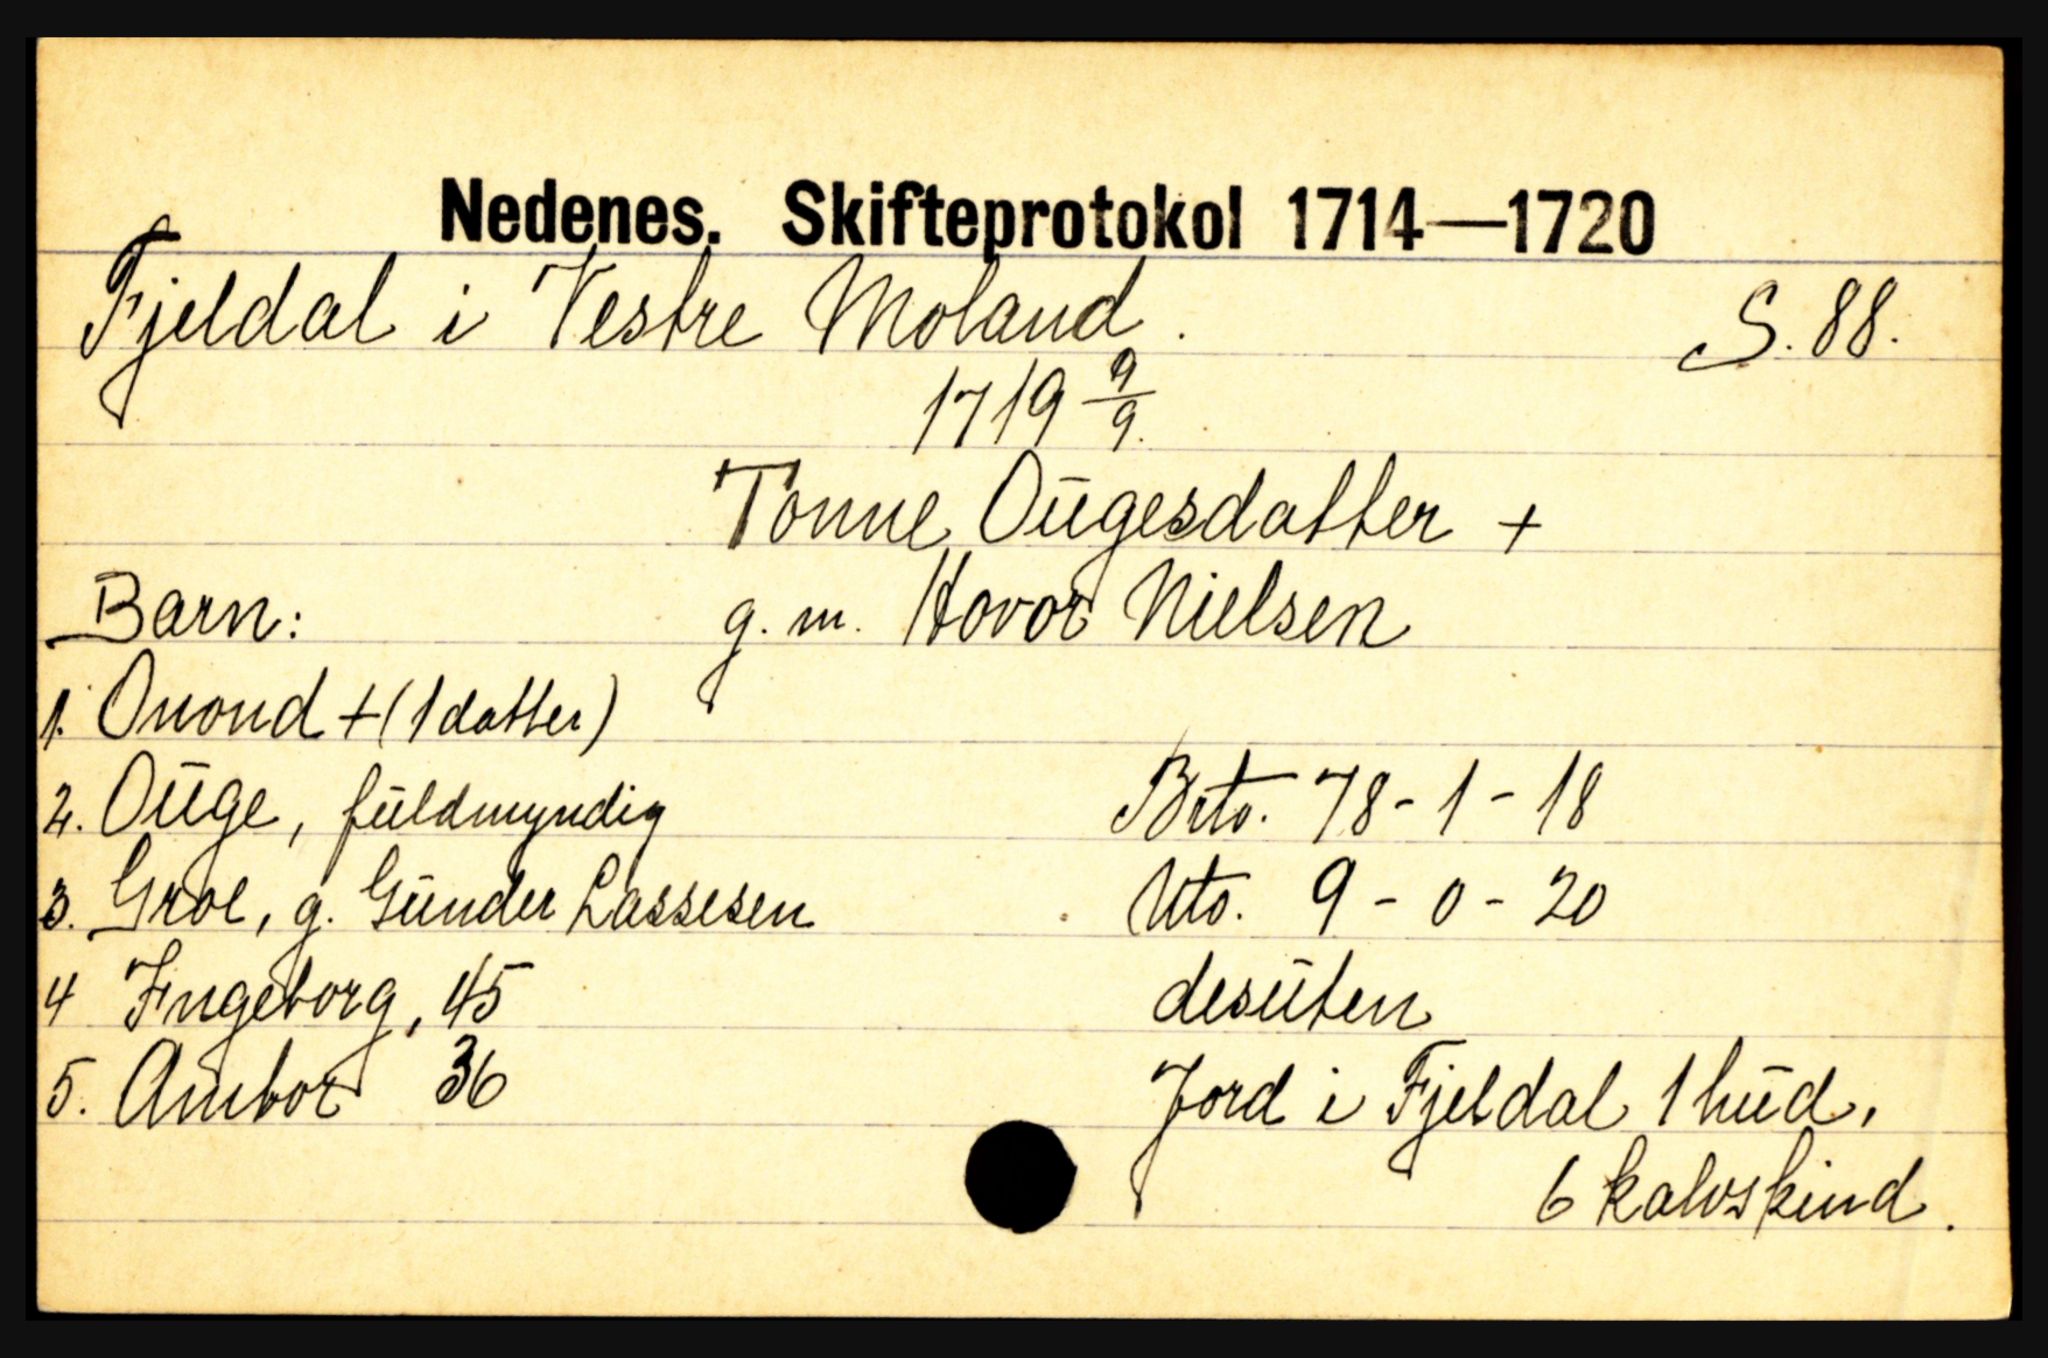 Nedenes. Skifteprotokol 1714—1720
Fjeldal i Vestre Moland.
S. 88.
1719 9/9.
Tonne Ougesdatter +
g. m. Hovor Nielsen
Barn:
1. Onond + (1 datter)
2. Ouge, fuldmyndig
3. Groe, g. Gunder Lassesen
4 Ingeborg, 45
5. Ambor 36
Brto. 78 - 1 - 18
Nto. 9 - 0 - 20
desuten
Jord i Fjeldal 1 hud,
6 kalvskind.